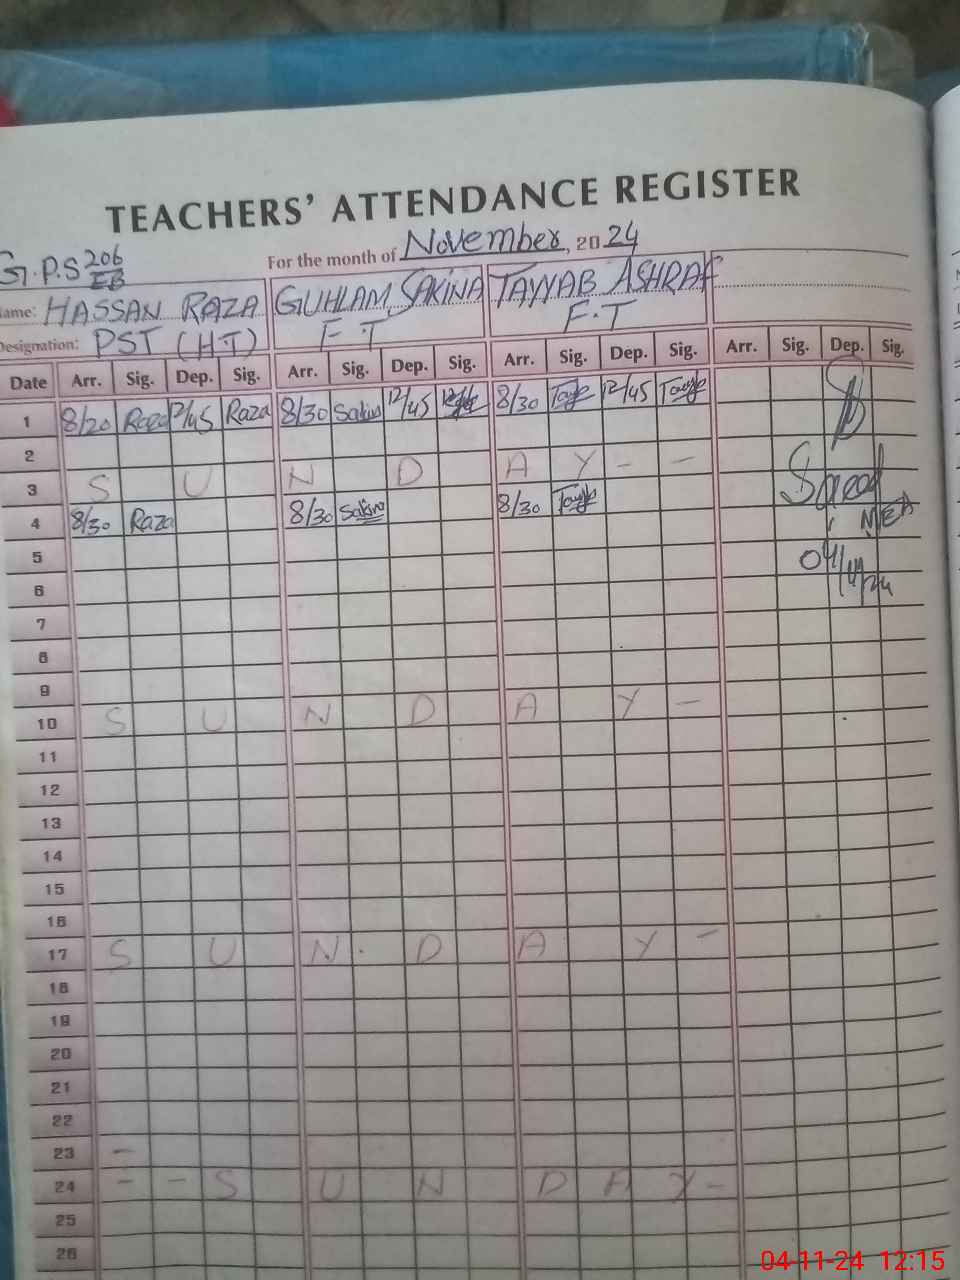 TEACHERS' ATTENDANCE REGISTER
For the month of November, 2024
G.P.S 206
EB
Name: HASSAN RAZA GUHLAM SAKINA TAYYAB ASHRAF
Designation: PST (H.T) F.T F.T
Date Arr. Sig. Dep. Sig. Arr. Sig. Dep. Sig. Arr. Sig. Dep. Sig. Arr. Sig. Dep. Sig.
1 8/20 Raza 12/45 Raza 8/30 Sakina 12/45 8/30 12/45
2
3 S U N D A Y - -
4 8/30 Raza 8/30 Sakina 8/30
MEA
5
04/11/24
6
7
8
9
10 S U N D A Y -
11
12
13
14
15
16
17 S U N D A Y -
18
19
20
21
22
23 -
24 - - S U N D A Y -
25
26
04-11-24 12:15